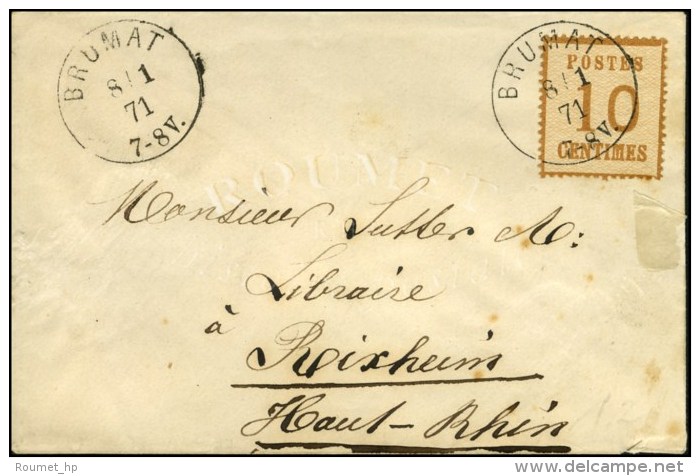 BRUMAT
8 1
71
7-8 V.
BRUMAT
8 1
71
7-8 V.
POSTES
10
CENTIMES
ROUMET
Monsieur Sutter M:
Libraire
à
Rixheim
Haut-Rhin
Roumet_hp
www.delcampe.net